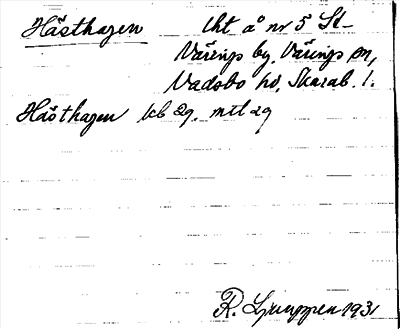 Hästhagen lht å nr 5 St-
Värings by, Värings sn,
Vadsbo hd, Skarab. l.
Hästhagen kb 29. mtl 29
R. Ljunggren 1931